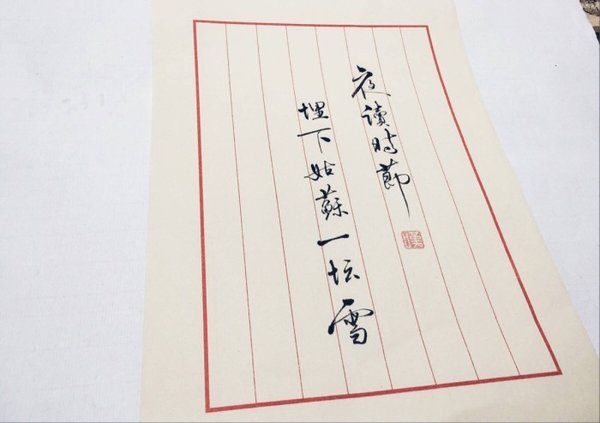 夜读時節
埋下姑蘇一坛雪